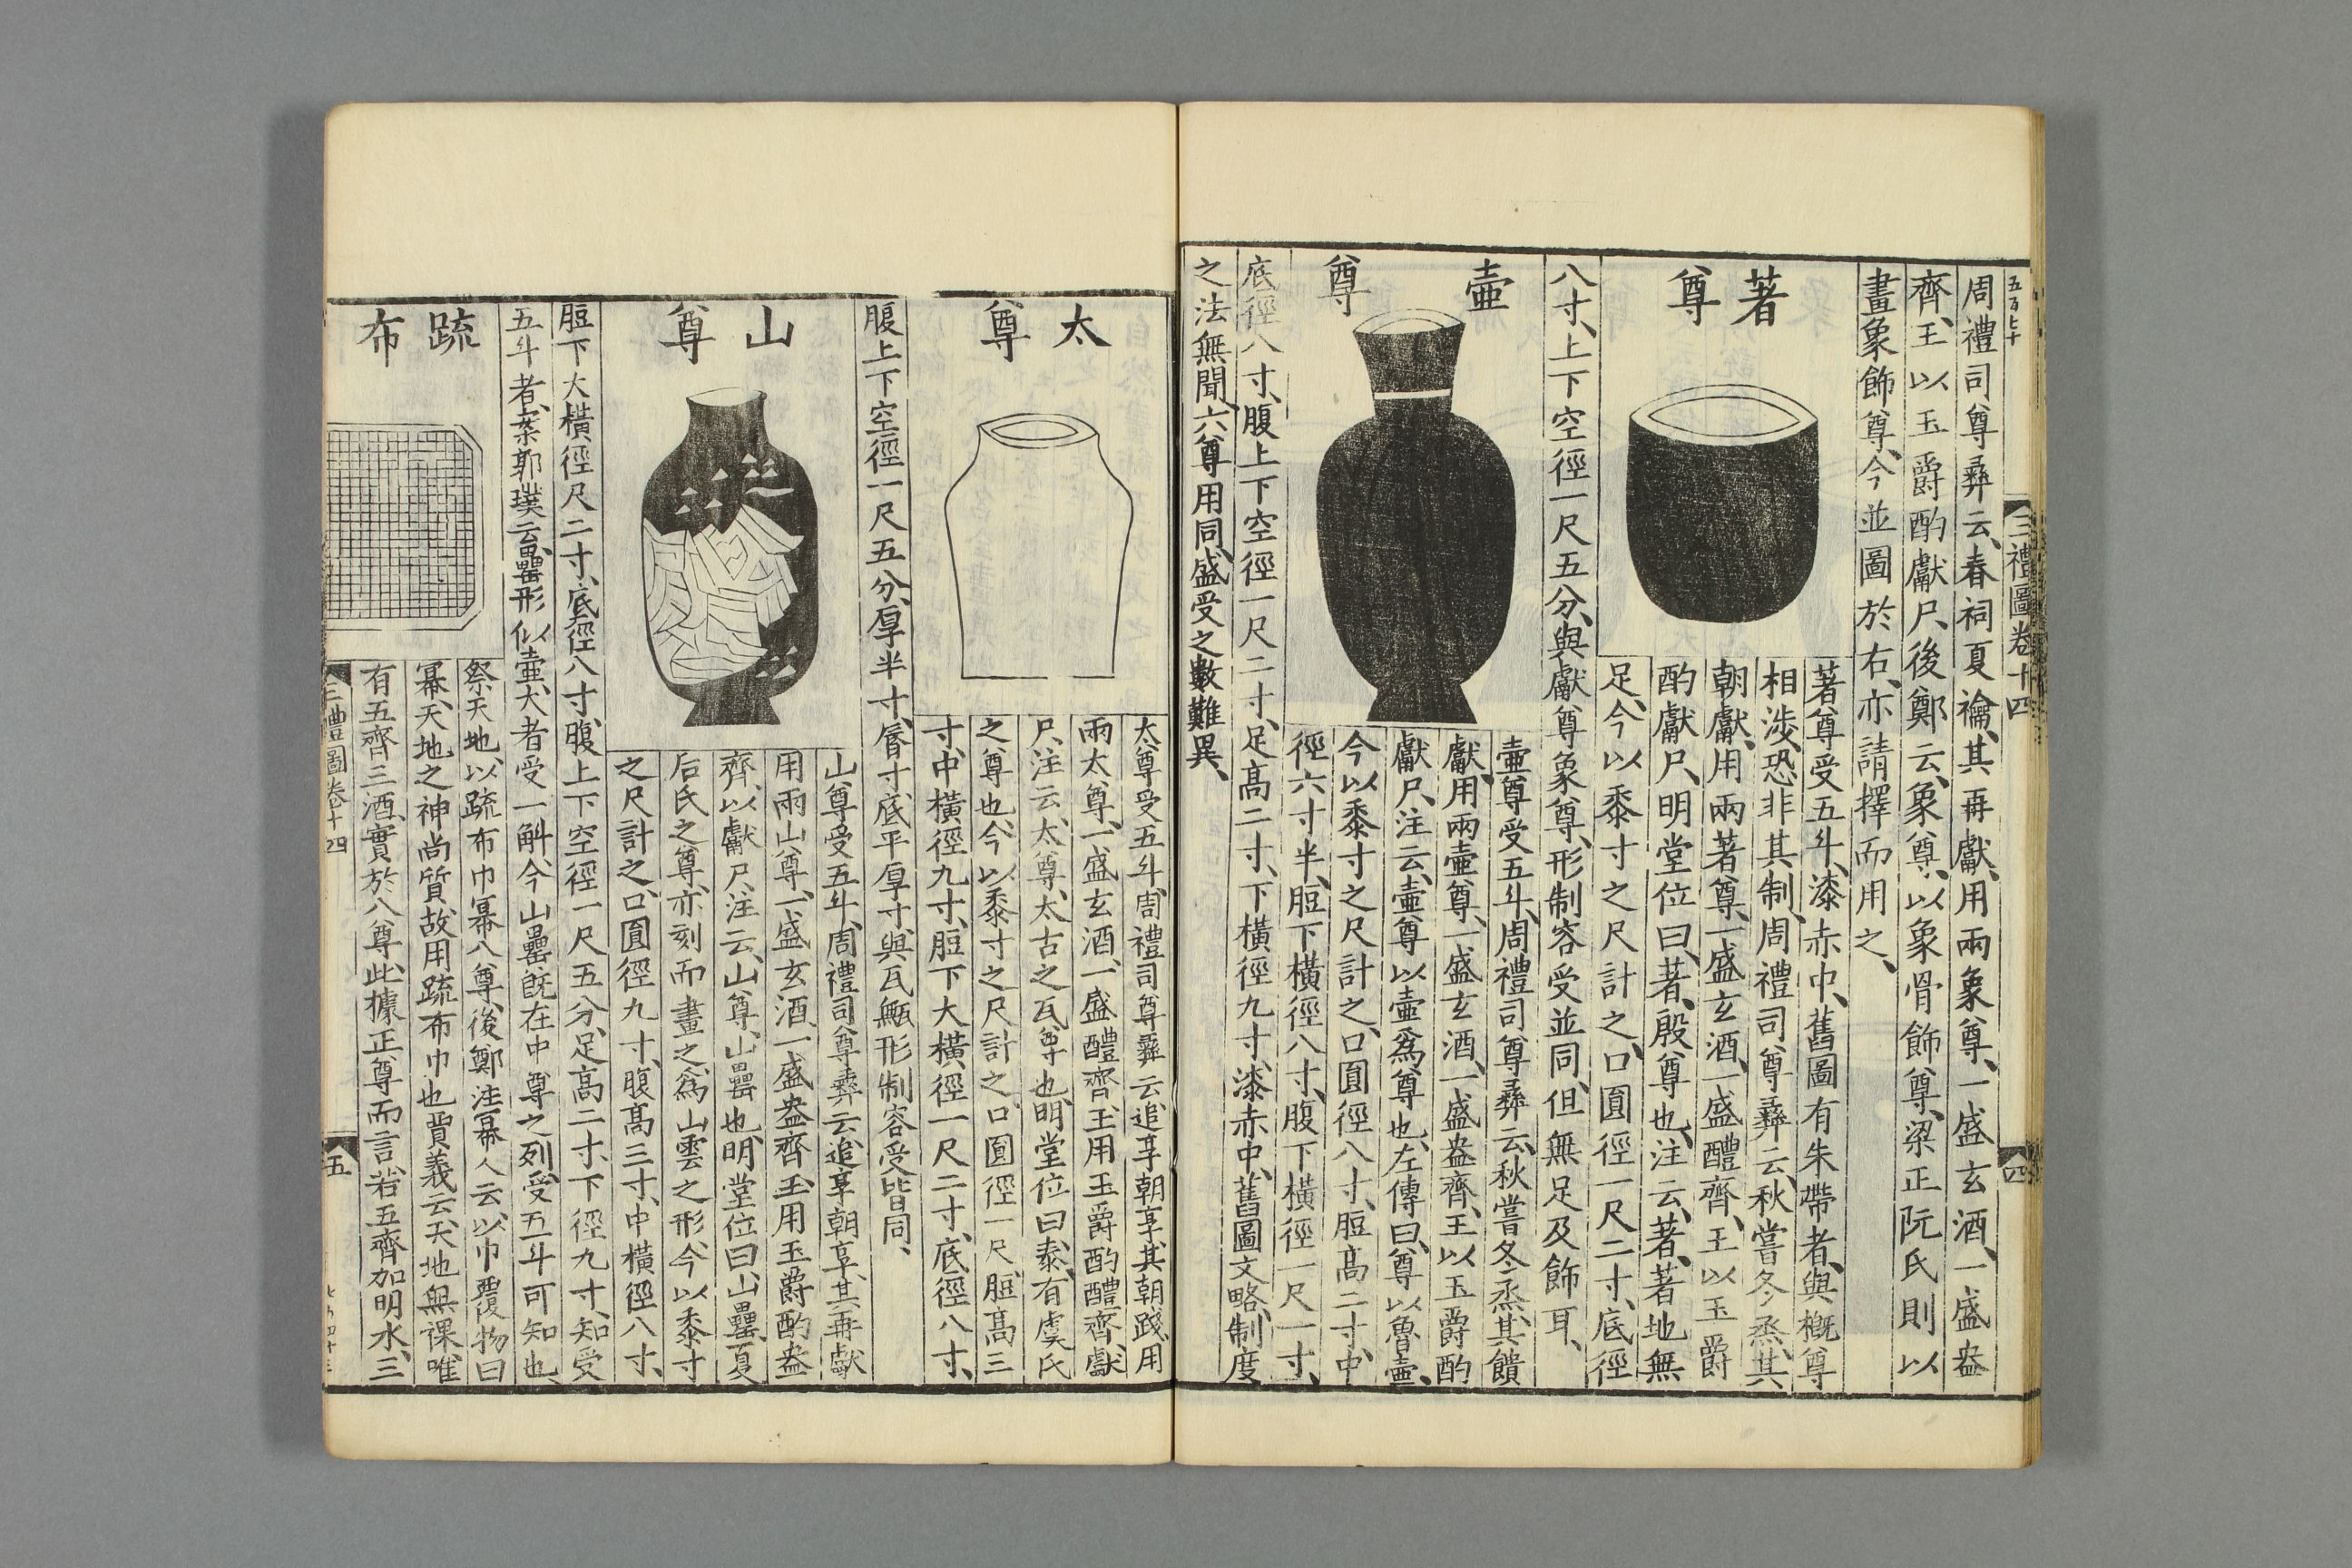 五百七十
三禮圖卷十四
四
周禮司尊彝云、春祠夏禴、其再獻、用兩象尊、一盛玄酒、一盛盎
齊、王以玉爵酌獻尸、後鄭云、象尊、以象骨飾尊、梁正阮氏則以
畫象飾尊、今並圖於右、亦請擇而用之、
著尊
著尊受五斗、漆赤中、舊圖有朱帶者、與概尊
相涉、恐非其制、周禮司尊彝云、秋嘗冬烝、其
朝獻、用兩著尊、一盛玄酒、一盛醴齊、王以玉爵
酌獻尸、明堂位曰、著、殷尊也、注云、著、著地無
足、今以黍寸之尺計之、口圓徑一尺二寸、底徑
八寸、上下空徑一尺五分、與獻尊象尊、形制容受並同、但無足及飾耳、
壺尊
壺尊受五斗、周禮司尊彝云、秋嘗冬烝、其饋
獻、用兩壷尊、一盛玄酒、一盛盎齊、王以玉爵酌
獻尸、注云、壷尊以壷爲尊也、左傳曰、尊以魯壷、
今以黍寸之尺計之、口圓徑八寸、脰高二寸、中
徑六寸半、脰下橫徑八寸、腹下橫徑一尺一寸、
底徑八寸、腹上下空徑一尺二寸、足高二寸、下橫徑九寸、漆赤中、舊圖文略、制度
之法無聞、六尊用同、盛受之數難異、
太尊
太尊受五斗、周禮司尊彝云追享朝享、其朝踐、用
兩太尊、一盛玄酒、一盛醴齊、王用玉爵酌醴齊、獻
尸、注云、太尊、太古之瓦尊也、明堂位曰、泰、有虞氏
之尊也、今以黍寸之尺計之、口圓徑一尺、脰高三
寸、中橫徑九寸、脰下大橫徑一尺二寸、底徑八寸、
腹上下空徑一尺五分、厚半寸、脣寸、底平厚寸、與瓦甒形制容受皆同、
山尊
山尊受五斗、周禮司尊彝云追享朝享、其再獻
用兩山尊、一盛玄酒、一盛盎齊、王用玉爵酌盎
齊、以獻尸、注云、山尊、山罍也、明堂位曰、山罍、夏
后氏之尊、亦刻而畫之、爲山雲之形、今以黍寸
之尺計之、口圓徑九寸、腹高三寸、中橫徑八寸、
脰下大橫徑尺二寸、底徑八寸、腹上下空徑一尺五分、足高二寸、下徑九寸、知受
五斗者、案郭璞云、罍形似壷、大者受一斛、今山罍既在中尊之列、受五斗可知也、
疏布
祭天地、以疏布巾冪八尊、後鄭注冪人云、以巾覆物曰
冪、天地之神尚質、故用疏布巾也、賈義云、天地無祼、唯
有五齊三酒、實於八尊、此據正尊而言、若五齊加明水、三
三禮圖卷十四
五